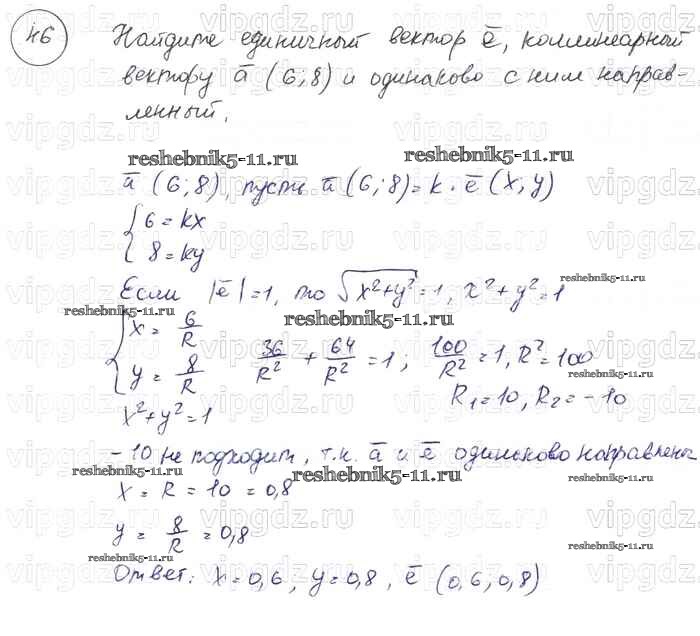 46 Найдите единичный вектор ē, коллинеарный
вектору ā (6;8) и одинаково с ним направ-
ленный.
reshebnik5-11.ru reshebnik5-11.ru
ā (6;8), пусть ā (6;8) = k · ē (x,y)
{ 6 = kx
8 = ky
reshebnik5-11.ru
Если |ē| = 1, то √x²+y² = 1, x²+y²=1
reshebnik5-11.ru reshebnik5-11.ru
{ x = 6/R
y = 8/R 36/R² + 64/R² = 1; 100/R² = 1, R² = 100
reshebnik5-11.ru
x²+y²=1 R₁=10, R₂=-10
-10 не подходит, т.к. ā и ē одинаково направлены
reshebnik5-11.ru reshebnik5-11.ru reshebnik5-11.ru
x = R = 10 = 0,8
y = 8/R = 0,8
reshebnik5-11.ru reshebnik5-11.ru reshebnik5-11.ru
Ответ: x=0,6, y=0,8, ē (0,6;0,8)
vipgdz.ru